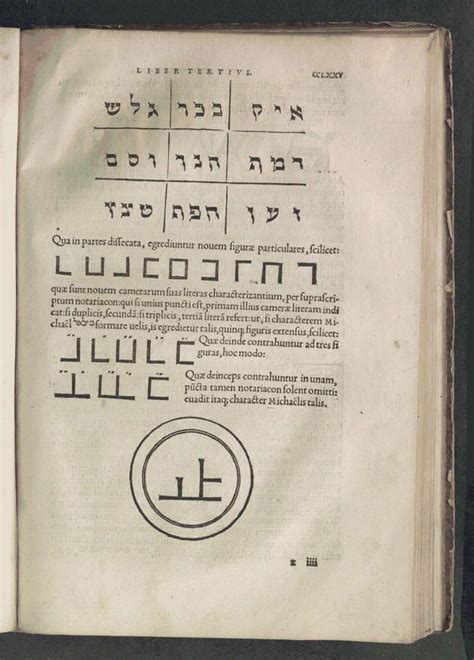 LIBER TERTIVS. CCLXXV
איק בכר גלש
וסם הנך דמת
זען חפף טצץ
Qua in partes dissecata, egrediuntur nouem figuræ particulares, scilicet:
quæ sunt nouem camerarum suas literas characterizantium, per suprascri-
ptum notariacon: qui si unius puncti est, primam illius cameræ literam indi
cat: si duplicis, secundã: si triplicis, tertiã literã refert: ut, si characterem Mi-
chaël מיכאל formare uelis, is egredietur talis, quinq; figuris extensus, scilicet:
Quæ deinde contrahuntur ad tres fi
guras, hoc modo:
Quæ deinceps contrahuntur in unam,
pũcta tamen notariacon solent omitti:
euadit itaq; character Michaëlis talis.
z iiii